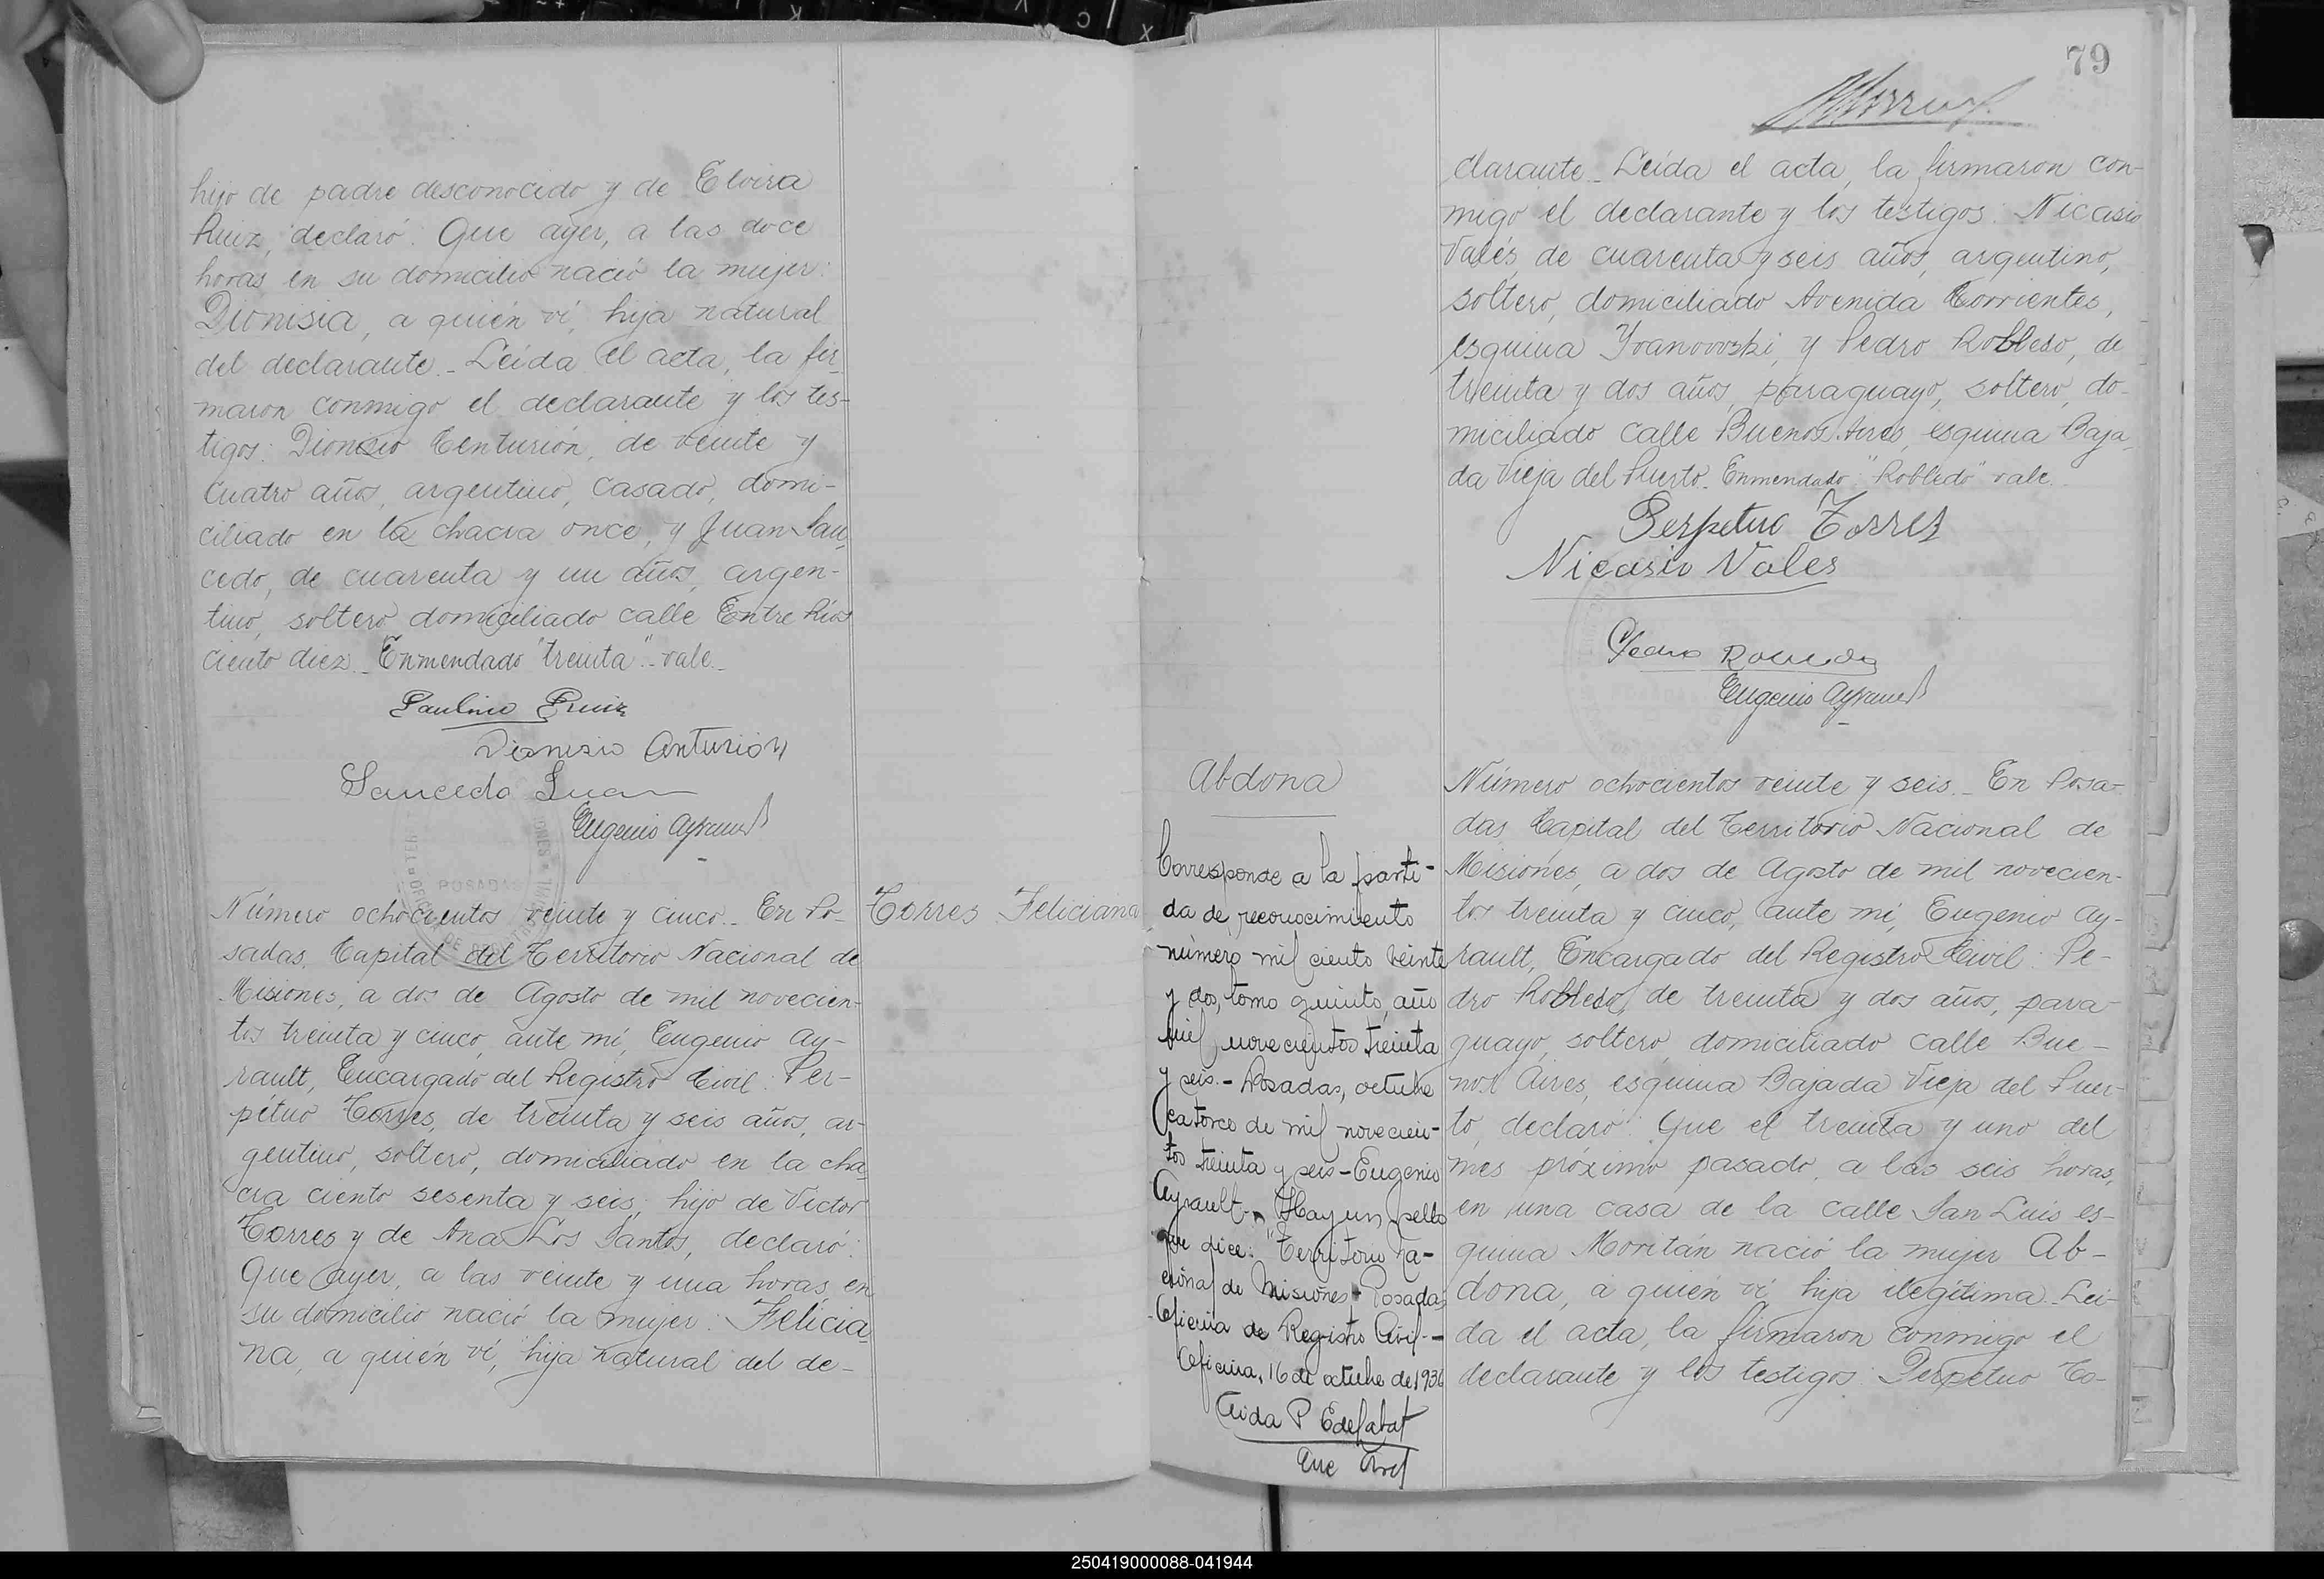 hijo de padre desconocido y de Elvira
Ruiz, declaró: Que ayer, a las doce
horas en su domicilio nació la mujer:
Dionisia, a quién ví, hija natural
del declarante._ Leída el acta, la fir-
maron conmigo el declarante y los tes-
tigos: Dionisio Centurión, de veinte y
cuatro años, argentino, casado, domi-
ciliado en la chacra once, y Juan Sau-
cedo, de cuarenta y un años, argen-
tino, soltero domiciliado calle Entre Ríos
ciento diez._ Enmendado "treinta"._ vale._
Paulino Ruiz
Dionisio Centurión
Saucedo Juan
Eugenio Ayrault
POSADAS
Número ochocientos veinte y cinco._ En Po-
sadas, Capital del Territorio Nacional de
Misiones, a dos de Agosto de mil novecien-
tos treinta y cinco, ante mí, Eugenio Ay-
rault, Encargado del Registro Civil: Per-
pétuo Torres, de treinta y seis años, ar-
gentino, soltero, domiciliado en la cha-
cra ciento sesenta y seis, hijo de Victor
Torres y de Ana Los Santos, declaró:
Que ayer, a las veinte y una horas, en
su domicilio nació la mujer: Felicia-
na, a quién ví, hija natural del de-
Torres Feliciana
79
clarante._ Leída el acta, la firmaron con-
migo el declarante y los testigos: Nicasio
Valés, de cuarenta y seis años, argentino,
soltero, domiciliado Avenida Corrientes,
esquina Yvanovski, y Pedro Robledo, de
treinta y dos años, paraguayo, soltero, do-
miciliado calle Buenos Aires, esquina Baja-
da Vieja del Puerto._ Enmendado: "Robledo" vale.
Perpetuo Torres
Nicasio Vales
Pedro Robledo
Eugenio Ayrault
Abdona
Corresponde a la parti-
da de reconocimiento
número mil ciento veinte
y dos, tomo quinto, año
mil novecientos treinta
y seis.- Posadas, octubre
catorce de mil novecien-
tos treinta y seis - Eugenio
Ayrault.- Hay un sello
que dice: "Territorio Na-
cional de Misiones - Posadas
- Oficina de Registro Civil.-
Oficina, 16 de octubre de 1936
Aida P
Número ochocientos veinte y seis._ En Posa-
das, Capital del Territorio Nacional de
Misiones, a dos de Agosto de mil novecien-
tos treinta y cinco, ante mí, Eugenio Ay-
rault, Encargado del Registro Civil: Pe-
dro Robledo, de treinta y dos años, para-
guayo, soltero, domiciliado calle Bue-
nos Aires, esquina Bajada Vieja del Puer-
to, declaró: Que el treinta y uno del
mes próximo pasado, a las seis horas,
en una casa de la calle San Luis es-
quina Moritán nació la mujer Ab-
dona, a quién ví, hija ilegítima._ Leí-
da el acta, la firmaron conmigo el
declarante y los testigos: Perpetuo To-
250419000088-041944